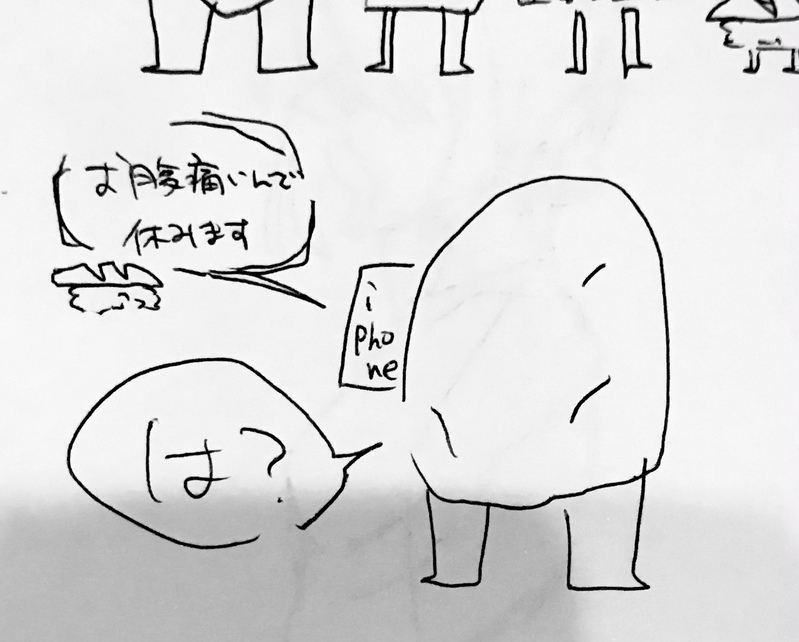 お腹痛いんで
休みます
i
pho
ne
は?